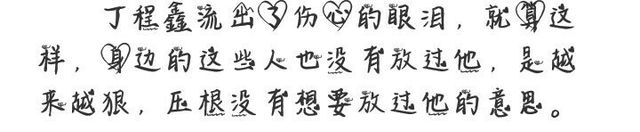 丁程鑫流出了伤心的眼泪，就算这
样，身边的这些人也没有放过他，是越
来越狠，压根没有想要放过他的意思。